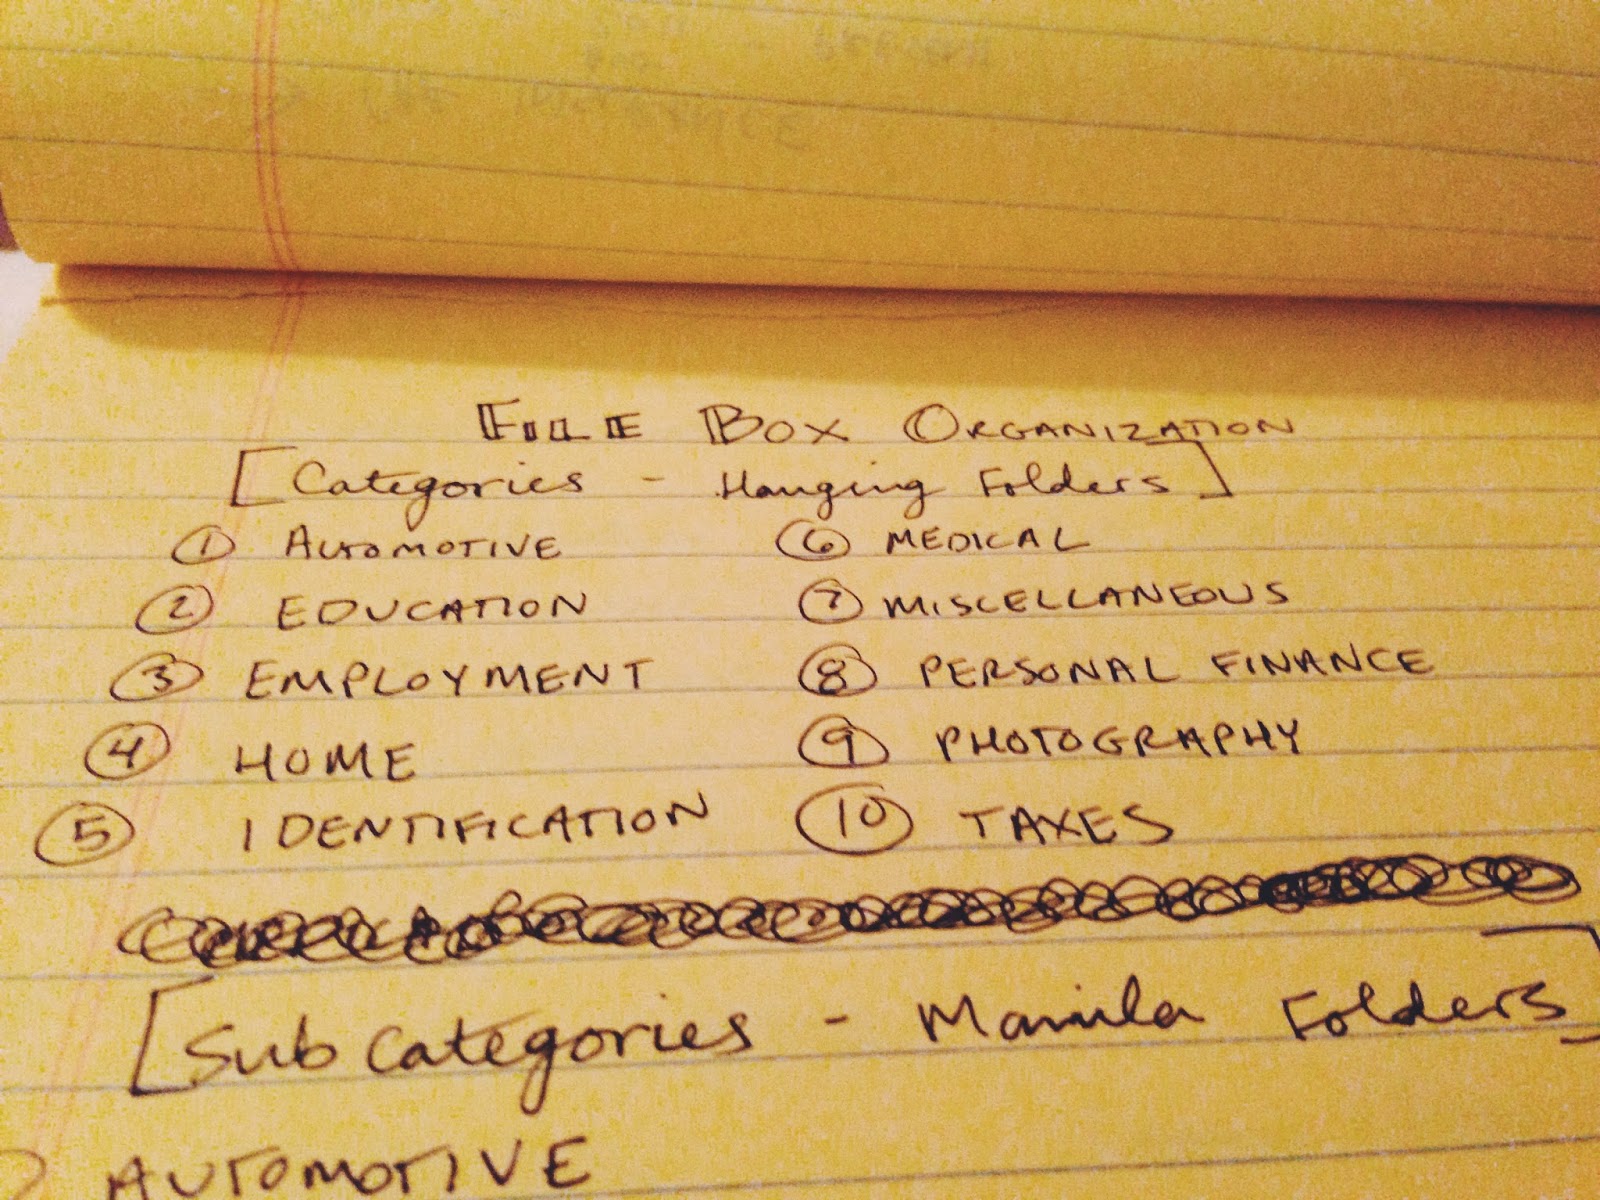 FILE BOX ORGANIZATION
[Categories - Hanging Folders]
① AUTOMOTIVE ⑥ MEDICAL
② EDUCATION ⑦ MISCELLANEOUS
③ EMPLOYMENT ⑧ PERSONAL FINANCE
④ HOME ⑨ PHOTOGRAPHY
⑤ IDENTIFICATION ⑩ TAXES
[Subcategories - Manila Folders]
AUTOMOTIVE